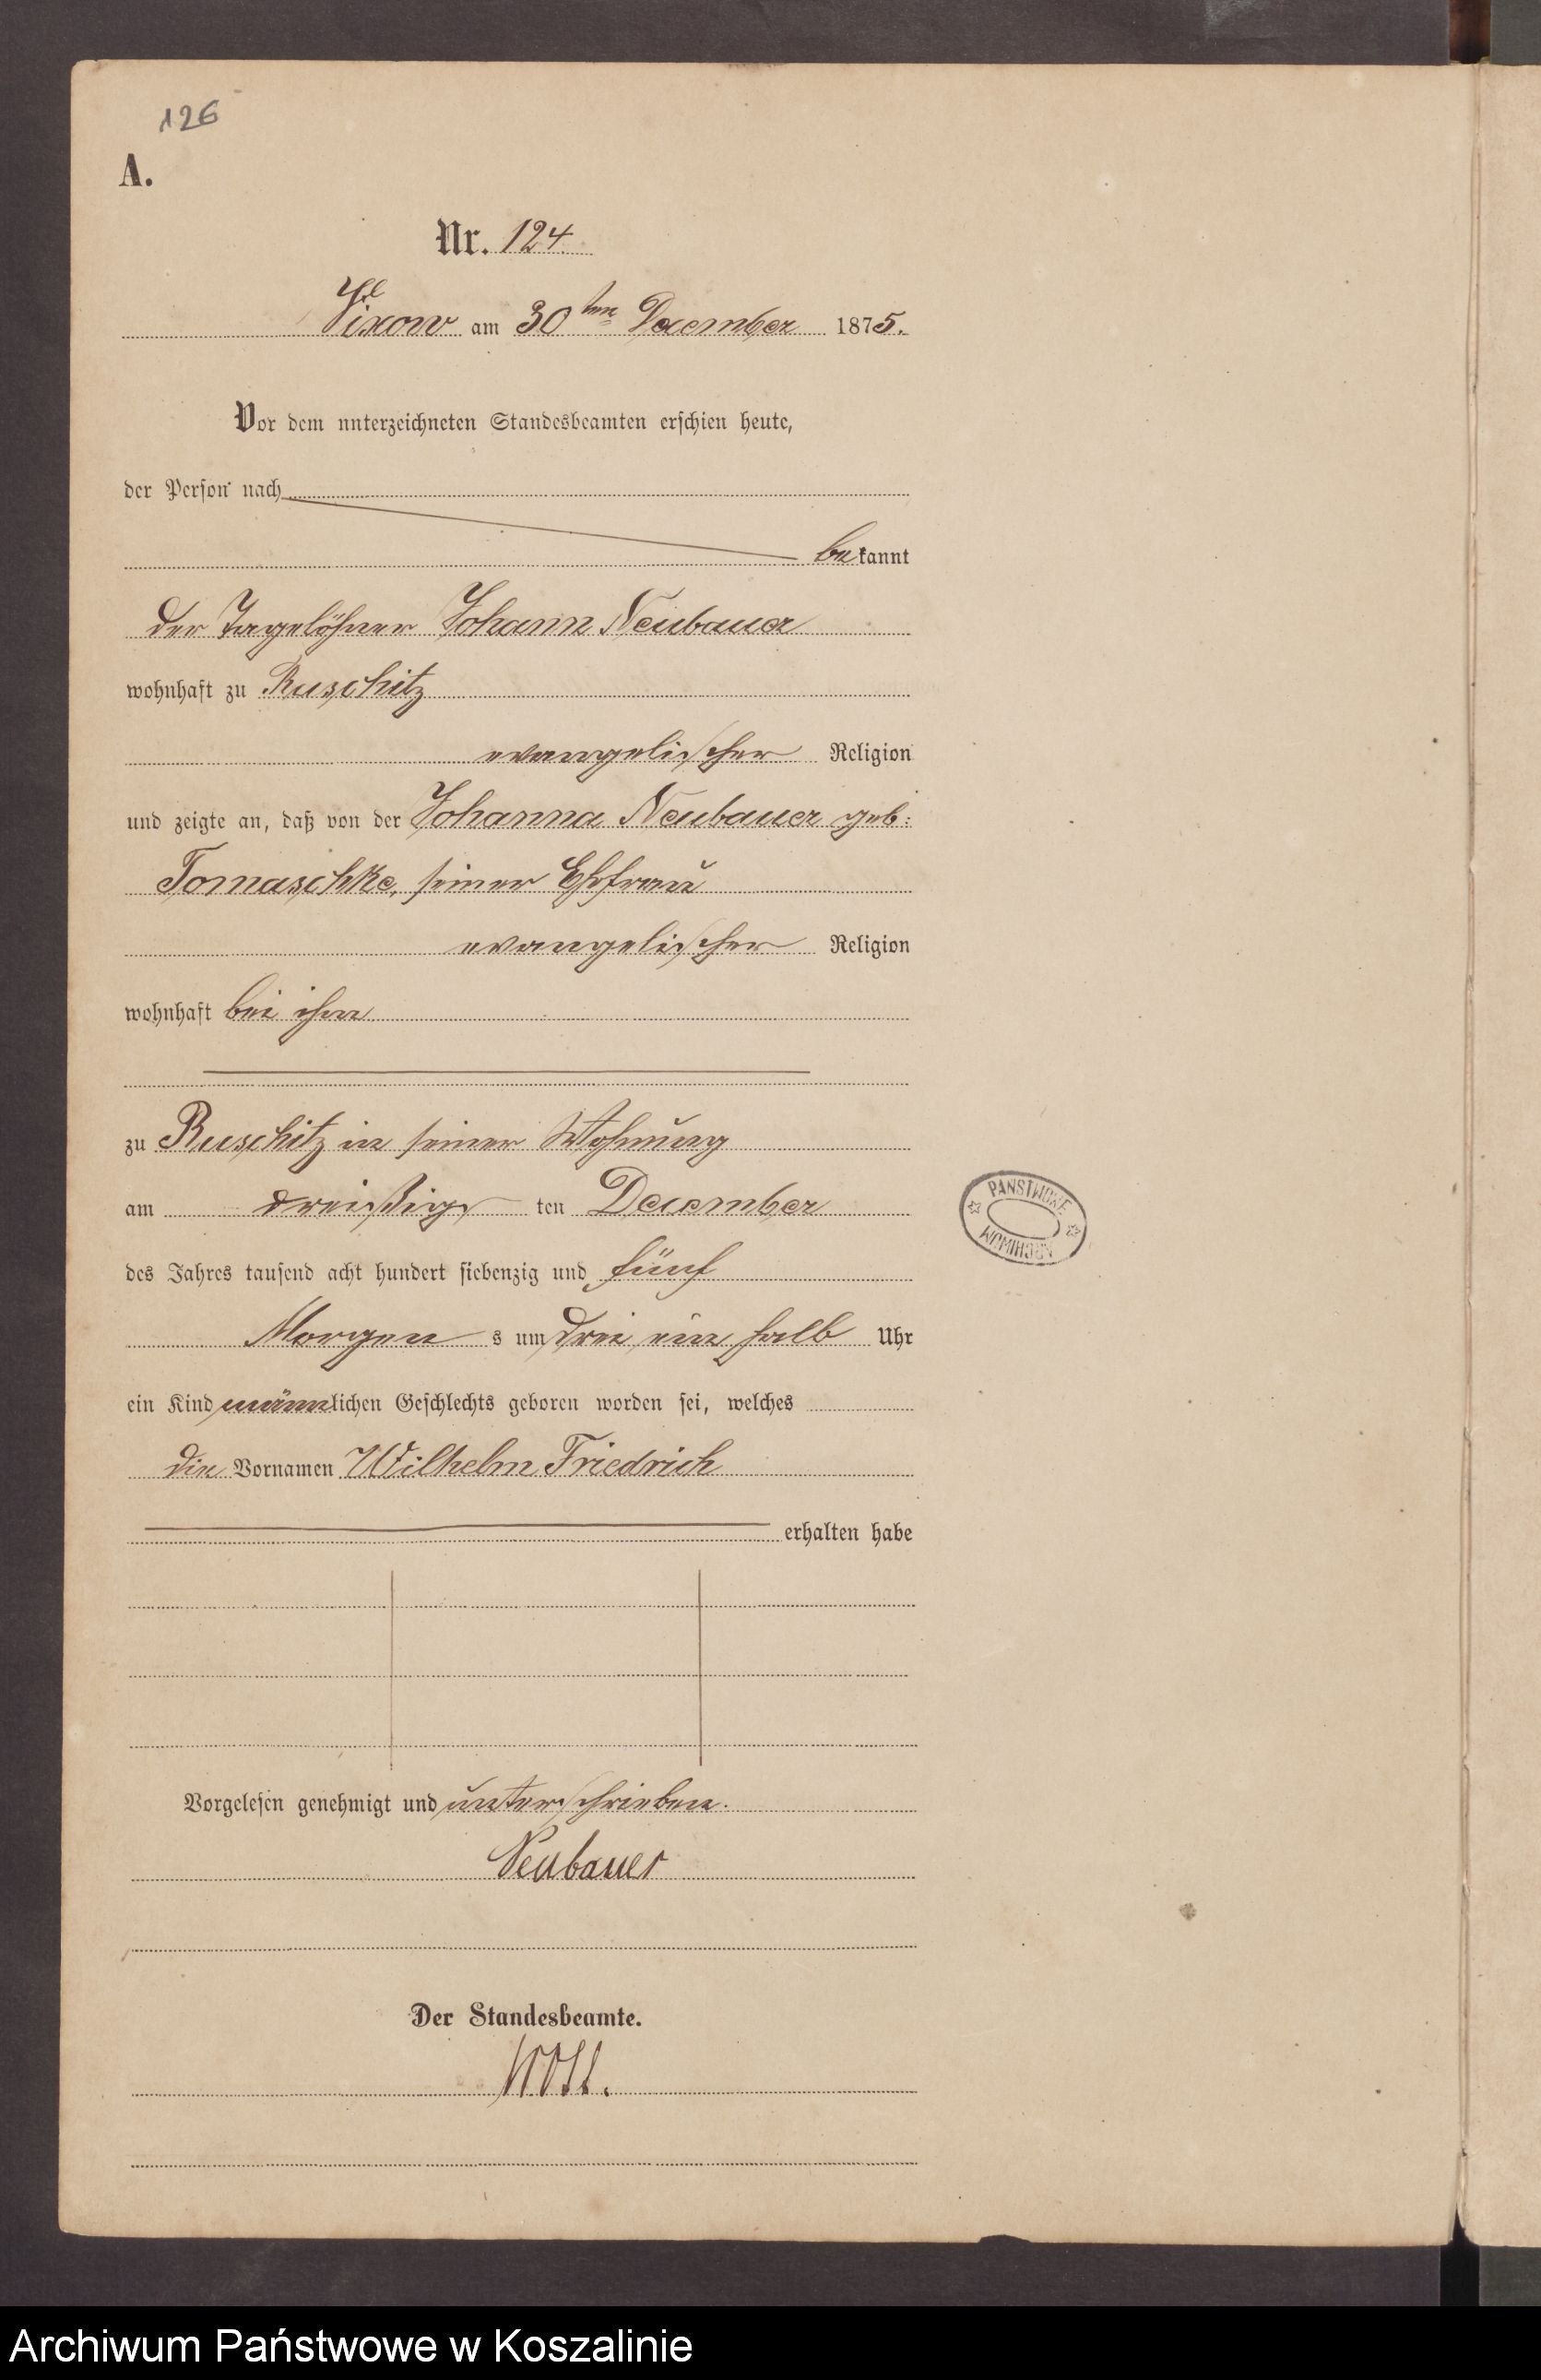 126
A.
Nr. 124.
Vixow am 30ten December 1875.
Vor dem unterzeichneten Standesbeamten erschien heute,
der Person nach
bekannt
der Tagelöhner Johann Neubauer
wohnhaft zu Ruschitz
evangelischer Religion
und zeigte an, daß von der Johanna Neubauer geb:
Tomaschke, seiner Ehefrau
evangelischer Religion
wohnhaft bei ihm
zu Ruschitz in seiner Wohnung
am dreißigs ten December
des Jahres tausend acht hundert siebenzig und fünf
Morgen s um drei ein halb Uhr
ein Kind männlichen Geschlechts geboren worden sei, welches
die Vornamen Wilhelm Friedrich
erhalten habe
PAŃSTWOWE
ARCHIWUM
Vorgelesen genehmigt und unterschrieben.
Neubauer
Der Standesbeamte.
Archiwum Państwowe w Koszalinie